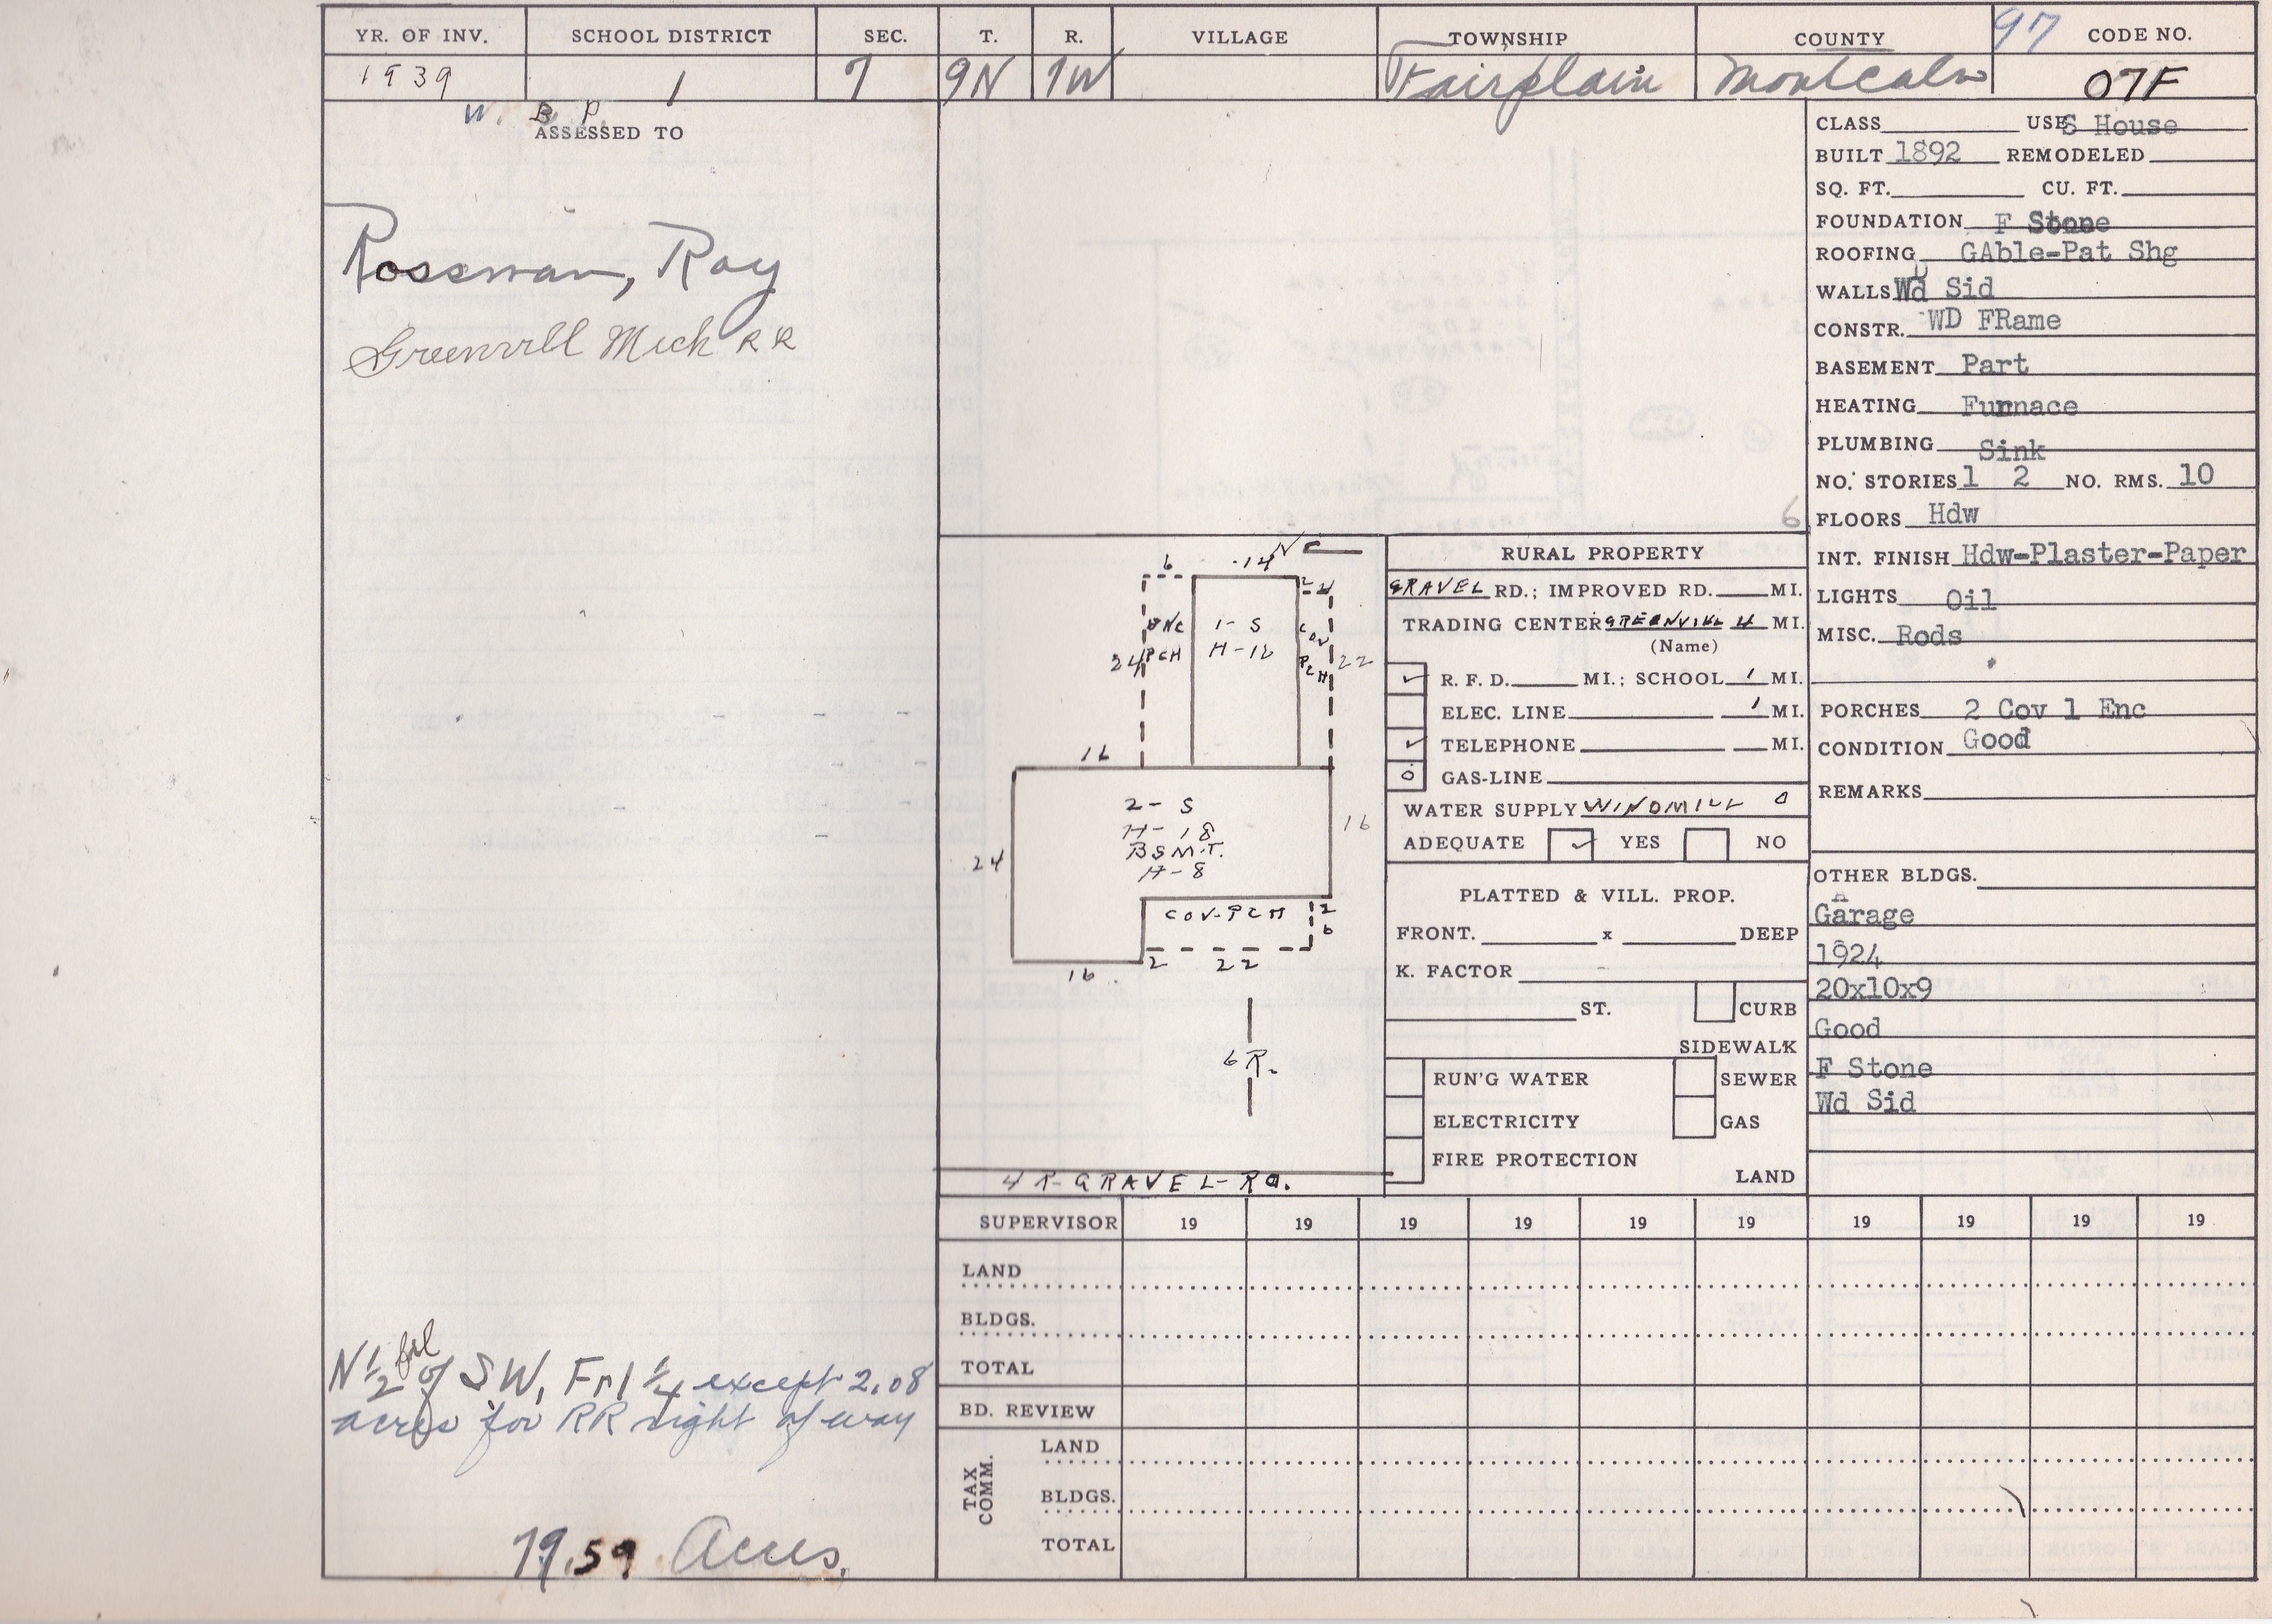 YR. OF INV. SCHOOL DISTRICT SEC. T. R. VILLAGE TOWNSHIP COUNTY 97 CODE NO.
1939 1 7 9N 7W Fairplain Montcalm 07F
W. B P.
ASSESSED TO
Rossman, Ray
Greenvill Mich RR
N 1/2 frl of SW, Frl 1/4 except 2.08
acres for RR right of way
79.59 Acres.
N
6 14
2 2
ENC PCH
1-S
H-12
COV PCH
24 22
16
2-S
H-18
BSMT.
H-8
24 16
COV-PCH
2
6
16 2 22
6 R.
4 R-GRAVEL-RD.
6
RURAL PROPERTY
GRAVEL RD.; IMPROVED RD. MI.
TRADING CENTER GREENVILLE 4 MI.
(Name)
✓ R. F. D. MI.; SCHOOL 1 MI.
ELEC. LINE 1 MI.
✓ TELEPHONE MI.
0 GAS-LINE
WATER SUPPLY WINDMILL 0
ADEQUATE ✓ YES NO
PLATTED & VILL. PROP.
FRONT. x DEEP
K. FACTOR
ST. CURB
SIDEWALK
RUN'G WATER SEWER
ELECTRICITY GAS
FIRE PROTECTION
LAND
CLASS USE S House
BUILT 1892 REMODELED
SQ. FT. CU. FT.
FOUNDATION F Stone
ROOFING GAble-Pat Shg
WALLS Wd Sid
CONSTR. WD FRame
BASEMENT Part
HEATING Furnace
PLUMBING Sink
NO. STORIES 1 2 NO. RMS. 10
FLOORS Hdw
INT. FINISH Hdw-Plaster-Paper
LIGHTS Oil
MISC. Rods
PORCHES 2 Cov 1 Enc
CONDITION Good
REMARKS
OTHER BLDGS.
Garage
1924
20x10x9
Good
F Stone
Wd Sid
SUPERVISOR 19 19 19 19 19 19 19 19 19 19
LAND
BLDGS.
TOTAL
BD. REVIEW
TAX COMM.
LAND
BLDGS.
TOTAL